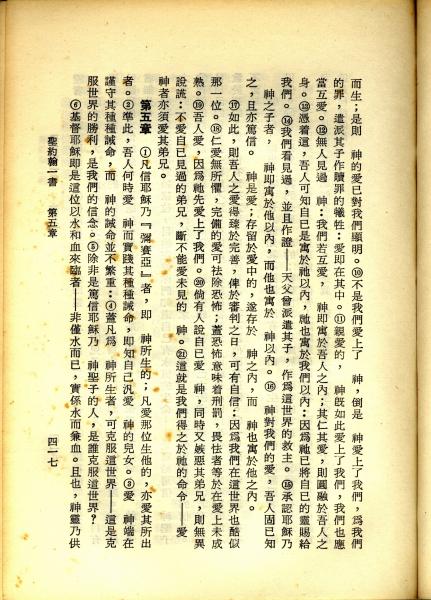 而生；是則　神的愛已對我們顯明。⑩不是我們愛上了　神，倒是　神愛上了我們，爲我們
的罪，遣派其子作贖罪的犧牲：愛即在其中。⑪親愛的，　神旣如此愛上了我們，我們也應
當互愛。⑫無人見過　神：我們若互愛，　神即寓於吾人之內；其仁其愛，則圓融於吾人之
身。⑬憑着這，吾人可知自己是寓於祂以內，祂也寓於我們以內：因爲祂已將自己的靈賜給
我們。⑭我們看見過，並且作證——天父曾派遣其子，作爲這世界的救主。⑮承認耶穌乃
神之子者，　神即寓於他以內，而他也寓於　神以內。⑯　神對我們的愛，吾人固已知
之，且亦篤信。　神是愛；存留於愛中的，遂存於　神之內，而　神也寓於他之內。
⑰如此，則吾人之愛得臻於完善，俾於審判之日，可有自信：因爲我們在這世界也酷似
那一位。⑱仁愛無所懼，完備的愛可祛除恐怖；蓋恐怖意味着刑罰，畏怯者等於在愛上未成
熟。⑲吾人愛，因爲祂先愛上了我們。⑳倘有人說自已愛　神，同時又嫉惡其弟兄，則無異
說謊：不愛自己見過的弟兄，斷不能愛未見的　神。㉑這就是我們得之於祂的命令——愛
神者亦須愛其弟兄。
第五章　①凡信耶穌乃『彌賽亞』者，即　神所生的；凡愛那位生他的，亦愛其所出
者。②準此，吾人何時愛　神而實踐其種種誡命，即知自己汎愛　神的兒女。③愛　神端在
謹守其種種誡命，而　神的誡命並不繁重：④蓋凡爲　神所生者，可克服這世界——這是克
服世界的勝利，是我們的信念。⑤除非是篤信耶穌乃　神聖子的人，是誰克服這世界？
⑥基督耶穌即是這位以水和血來臨者——非僅水而已，實係水而兼血。且也，神靈乃供
聖約翰一書　第五章　四一七